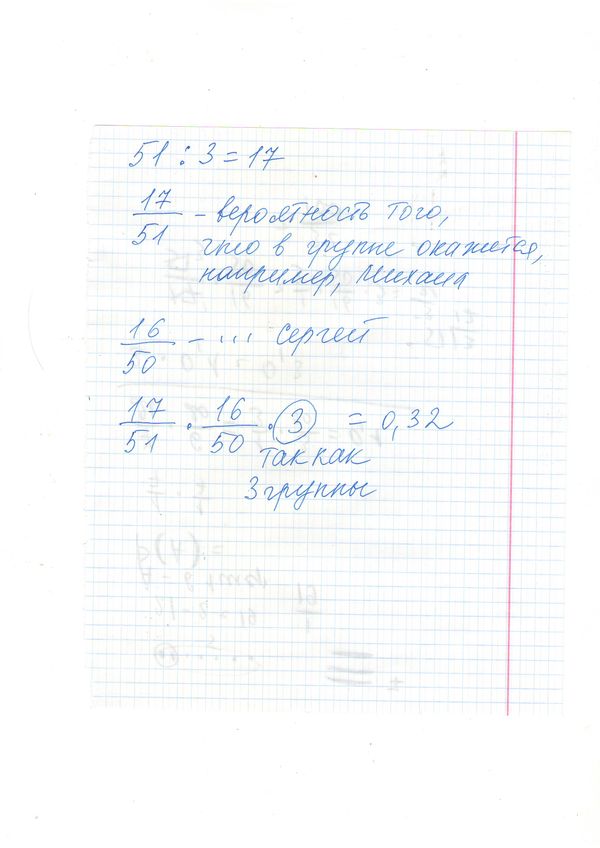 51 : 3 = 17
17/51 - вероятность того,
что в группе окажется,
например, Михаил
16/50 - ... Сергей
17/51 · 16/50 · 3 = 0,32
так как
3 группы